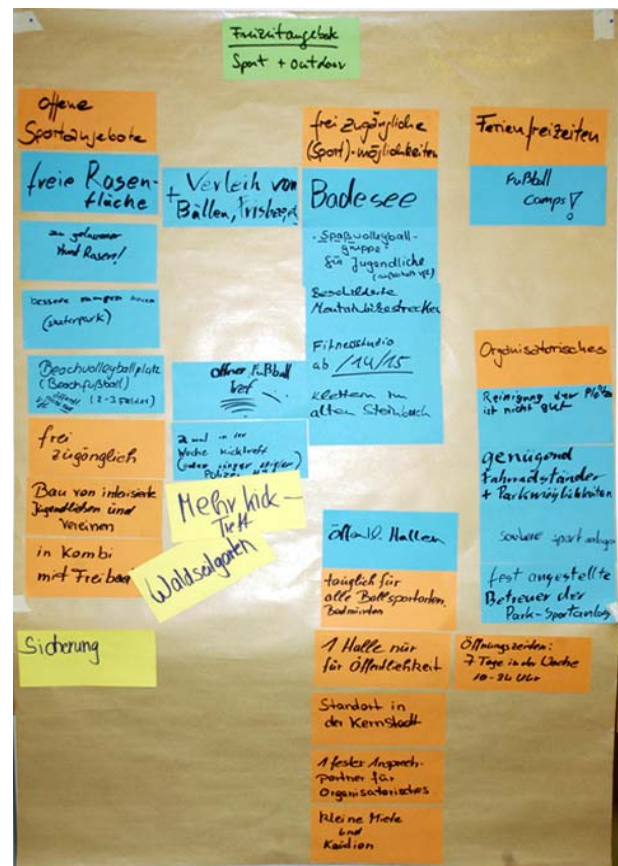 Freizeitangebot
Sport + Outdoor
Offene
Sportangebote
freie Rasen-
fläche
zu gelassener
Hund Rasen!
bessere rampen
(skaterpark)
Beachvolleyballplatz
(Beachfußball)
(2-3 Felder)
frei
zugänglich
Bau von
Jugendlichen und
Vereinen
in Kombi
mit Freibad
Sicherung
+ Verleih von
Bällen, Frisbees
offener Fußball
treff
2 mal in der
Woche Kicktreff
(oder
Mehr kick-
Treff
Waldseilgarten
frei zugängliche
(Sport)-möglichkeiten
Badesee
- Spaßvolleyball-
gruppe
für Jugendliche
Beschilderte
Mountainbikestrecken
Fitnessstudio
ab /14/15
Klettern im
alten Steinbruch
Öffentl. Hallen
tauglich für
alle Ballsportarten,
Badminton
1 Halle nur
für Öffentlichkeit
Standort in
der Kernstadt
1 fester Ansprech-
partner für
Organisatorisches
kleine Miete
und
Kaution
Ferienfreizeiten
Fußball
Camps!
Organisatorisches
Reinigung der Plätze
ist nicht gut
genügend
Fahrradständer
+ Parkmöglichkeiten
Saubere sportanlagen
fest angestellte
Betreuer der
Park-Sportanlag
Öffnungszeiten:
7 Tage in der Woche
10-24 Uhr